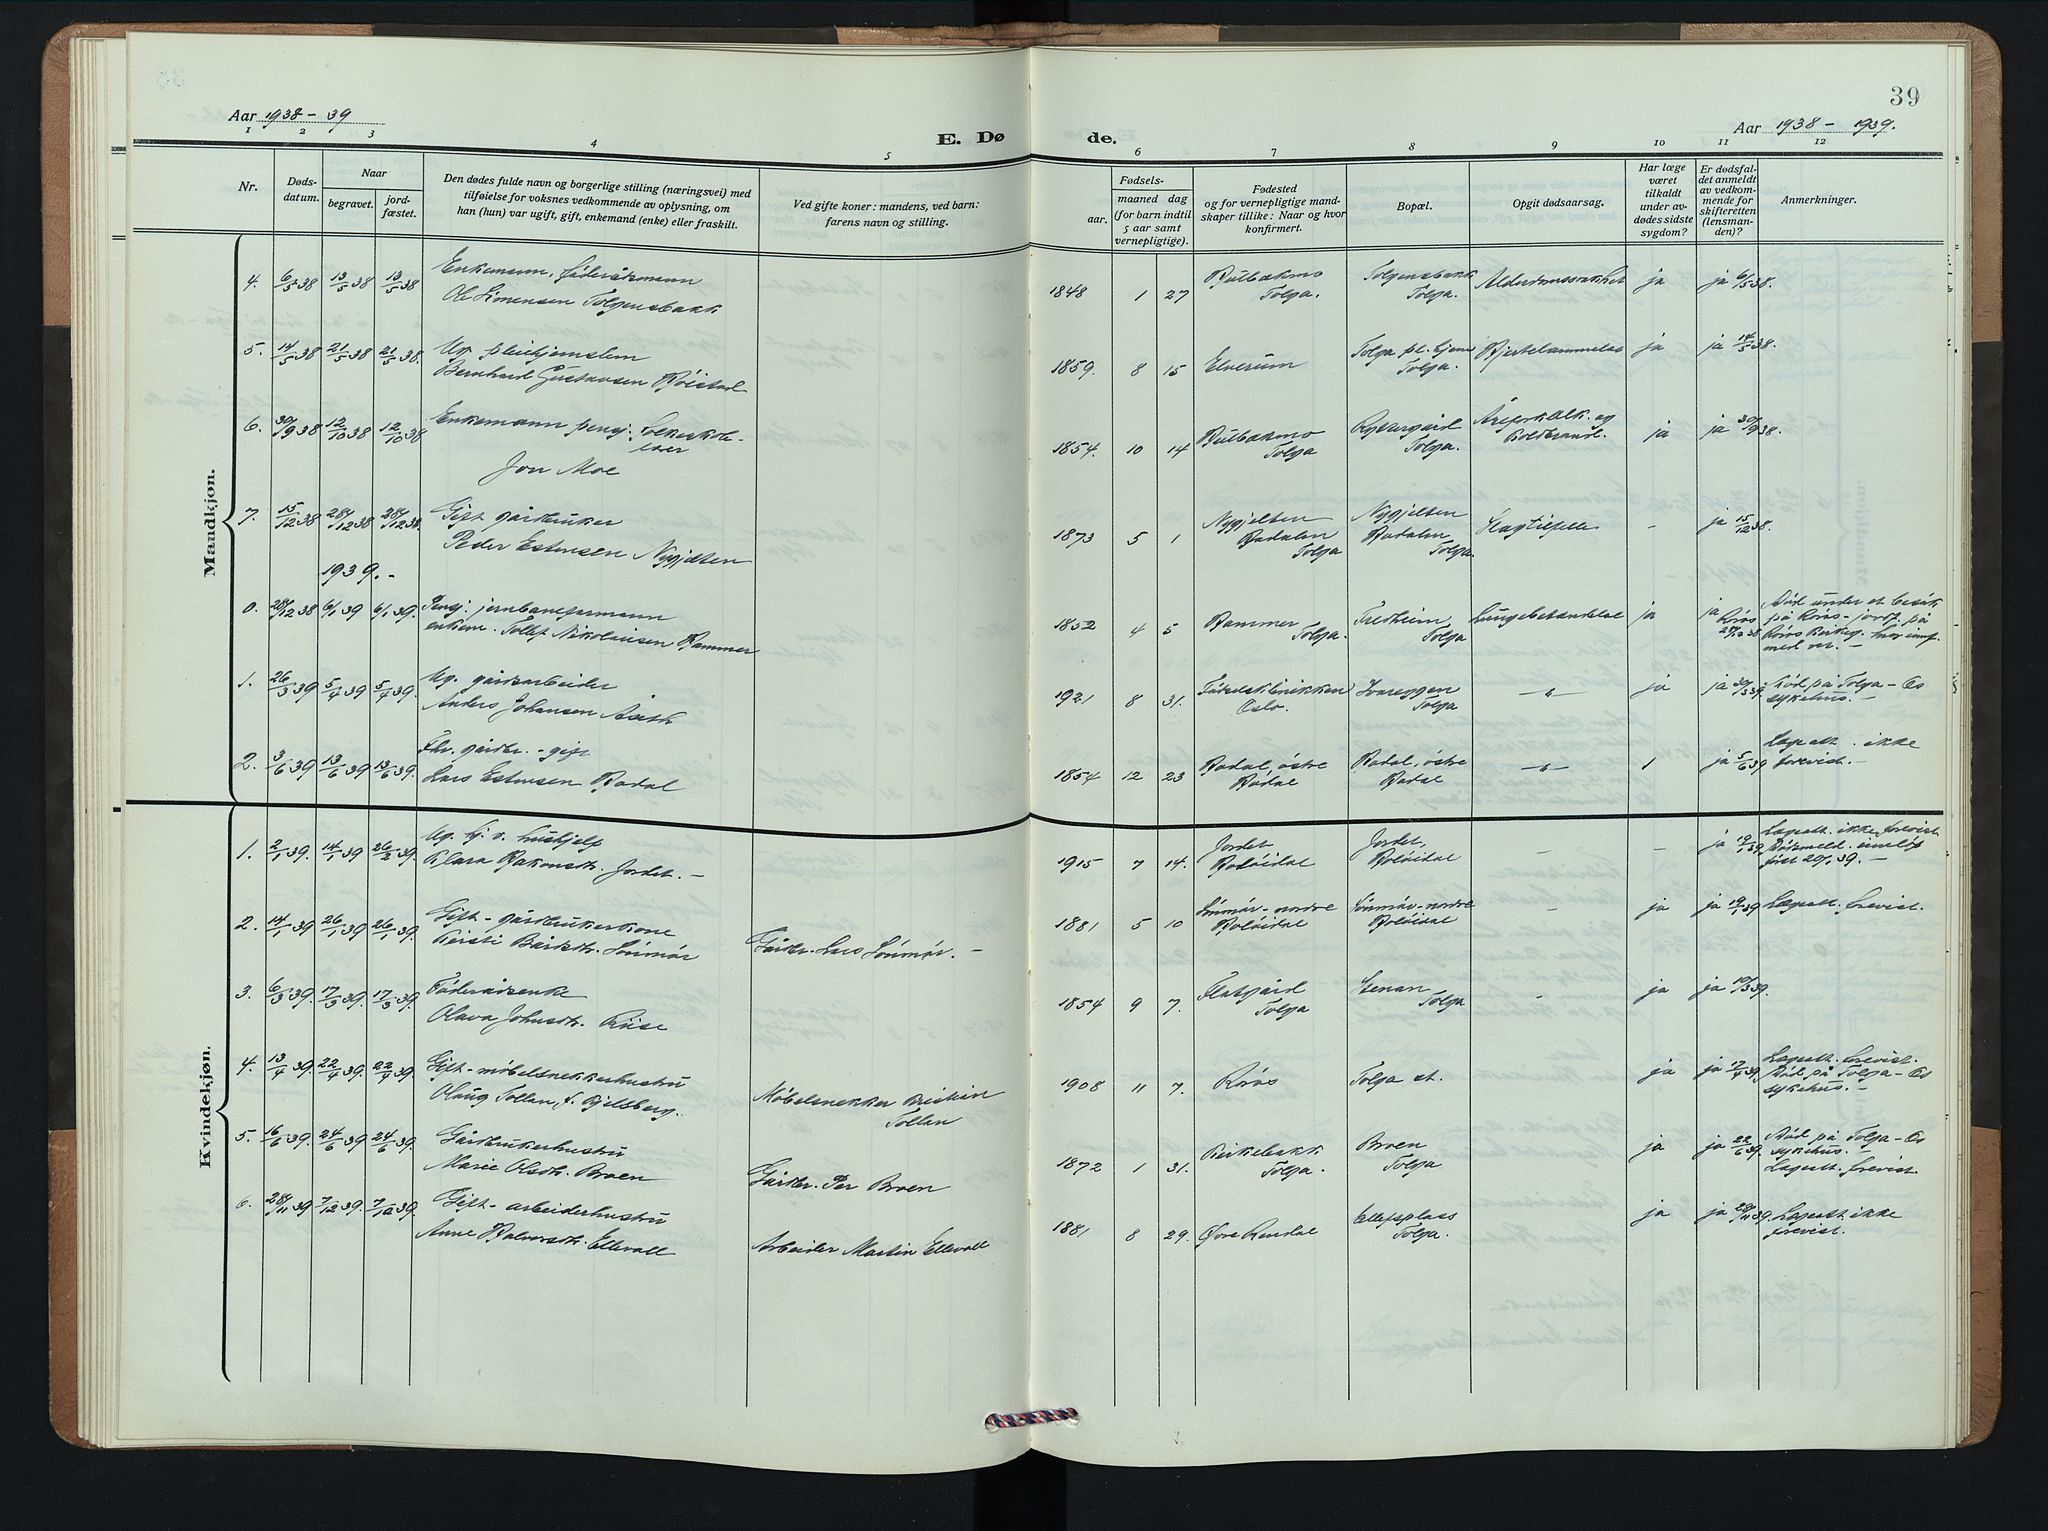 39
Aar 1938 - 39
Aar 1938 - 1939.
E. Dø de.
1 2 3 4 5 6 7 8 9 10 11 12
Nr.
Dødsdatum.
Naar
begravet.
jordfæstet.
Den dødes fulde navn og borgerlige stilling (næringsvei) med
tilføielse for voksnes vedkommende av oplysning, om
han (hun) var ugift, gift, enkemand (enke) eller fraskilt.
Ved gifte koner: mandens, ved barn:
farens navn og stilling.
Fødsels-
aar.
maaned dag
(for barn indtil
5 aar samt
vernepligtige).
Fødested
og for vernepligtige mand-
skaper tillike: Naar og hvor
konfirmert.
Bopæl.
Opgit dødsaarsag.
Har læge
været
tilkaldt
under av-
dødes sidste
sygdom?
Er dødsfal-
det anmeldt
av vedkom-
mende for
skifteretten
(lensman-
den)?
Anmerkninger.
Mandkjøn.
4. 6/5 38 13/5 38 13/5 38 Enkemann, føderådsmann
Ole Simensen Tolgensbakk
1848 1 27 Tolga. Tolgensbakk Tolga. ja ja 6/5 38.
5. 14/5 38 21/5 38 21/5 38. Ug. pleiehjemslem
Bernhard Gustavsen Røistad
1859. 8 15 Elverum Tolga pl. hjem Tolga. Hjertelammelse ja ja 14/5 38.
6. 30/9 38 12/10 38 12/10 38 Enkemann pensj.
Jon Moe
1854. 10 14 Tolga Tolga. Åreforkalk. og Koldbrand. ja ja 30/9 38.
7. 15/12 38 28/12 38 28/12 38. Gift gårdbruker
Peder Estensen Nygjelten
1873 5 1 Nygjelten Hodalen Tolga Nygjelten Hodalen Tolga. Slagtilfelle - ja 15/12 38.
1939. -
0. 28/12 38 6/1 39 6/1 39. Pensj. jernbaneformann
enkem. Tollef Nikolaisen Hammer
1852 4 5 Hammer Tolga. Fredheim Tolga Lungebetendelse ja ja Røros Død under et besøk
på Røros - jordf. på
Røros
1. 26/3 39 5/4 39 5/4 39. Ug. gårdsarbeider
Anders Johansen Aaseth
1921 8 31. Fødselsklinikken Oslo. Tolga ja ja 30/3 39. Død på Tolga - Os
sykehus. -
2. 3/6 39 13/6 39 13/6 39. Fhv. gårdbr. - gift
Lars Estensen Hodal
1854 12 23 Hodal, østre Hodal Hodal, østre Hodal ja 5/6 39 Legeatt. ikke
forevist. -
Kvindekjøn.
1. 2/1 39. 14/1 39 26/2 39. Ug. hj. v. hushjelp
Klara Hakonsdtr. Jordet. -
1915 7 14. Jordet Holøidal Jordet, Holøidal - - ja 19/1 39 Legeatt. ikke forevist.
Dødsmeld. innløp
først 20/1 39. -
2. 14/1 39 26/1 39 26/1 39. Gift - gårdbrukerkone
Kirsti Bårdsdtr. Sønmør
Gårdbr. Lars Sønmør. -
1881 5 10 Sønmør - nordre Holøidal Sønmør - nordre Holøidal - ja ja 19/1 39 Legeatt. forevist.
3. 6/3 39. 17/3 39. 17/3 39. Føderådsenke
Olava Johnsdtr. Riise
1854 9 7. Flatgård Tolga Stenan Tolga - ja ja 10/3 39.
4. 13/4 39. 22/4 39. 22/4 39. Gift - møbelsnekkerhustru
Olaug Tollan f. Kjelsberg.
Møbelsnekker Kristian
Tollan
1908 11 7. Røros Tolga st. ja ja 17/4 39. Legeatt. forevist.
Død på Tolga - Os
sykehus. -
5. 16/6 39. 24/6 39. 24/6 39. Gårdbrukerhustru
Marie Olsdtr. Broen
Gårdbr. Per Broen
1872 1 31. Kirkebakk Tolga. Broen Tolga ja ja 22/6 39. Død på Tolga - Os
sykehus.
Legeatt. forevist.
6. 28/11 39 7/12 39. 7/12 39. Gift - arbeiderhustru
Anne Halvorsdtr. Ellevoll
Arbeider Martin Ellevoll
1881 8 29. Øvre Rendal Ellefsplass Tolga. ja ja 28/11 39. Legeatt. ikke
forevist.